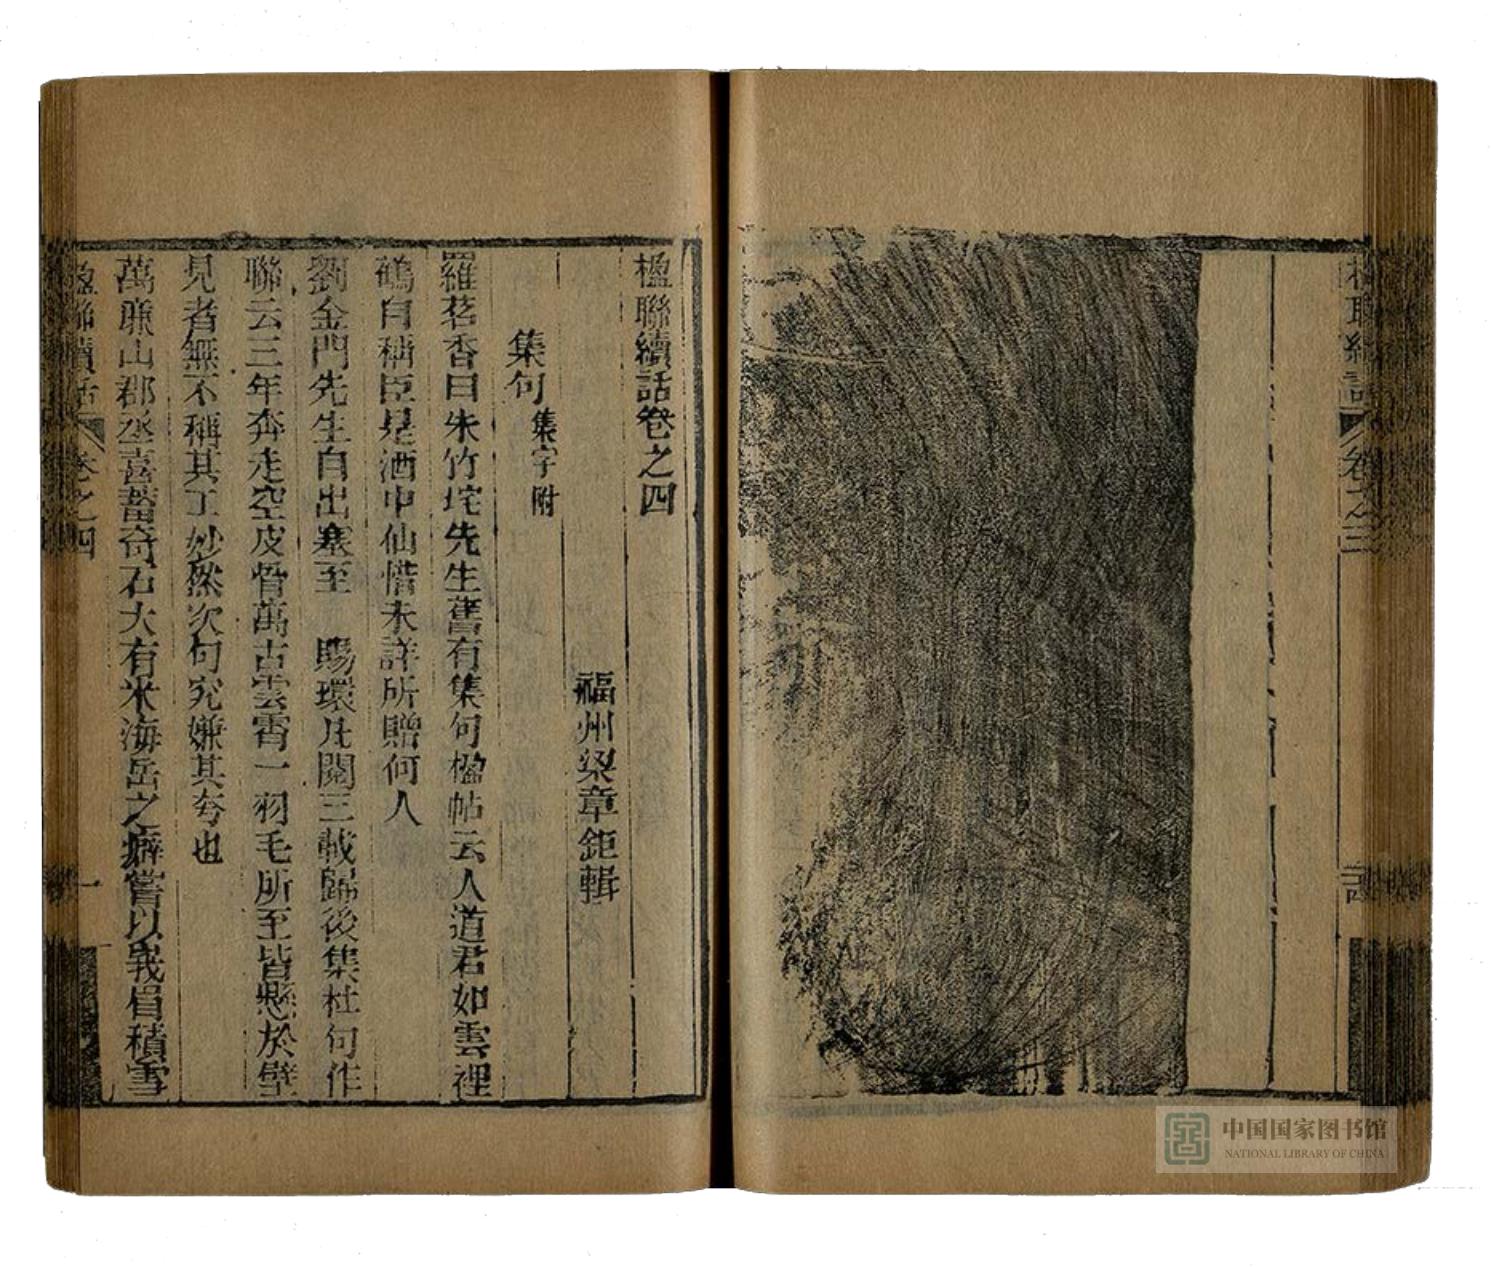 楹聯續話卷之三
楹聯續話卷之四
福州梁章鉅輯
集句集字附
羅茗香曰朱竹垞先生舊有集句楹帖云人道君如雲裡
鶴自稱臣是酒中仙惜未詳所贈何人
劉金門先生自出塞至 賜環凡閱三載歸後集杜句作
聯云三年奔走空皮骨萬古雲霄一羽毛所至皆懸於壁
見者無不稱其工妙然次句究嫌其夸也
萬廉山郡丞喜蓄奇石大有米海岳之癖嘗以峩眉積雪
楹聯續話 卷之四 一
中国国家图书馆
NATIONAL LIBRARY OF CHINA